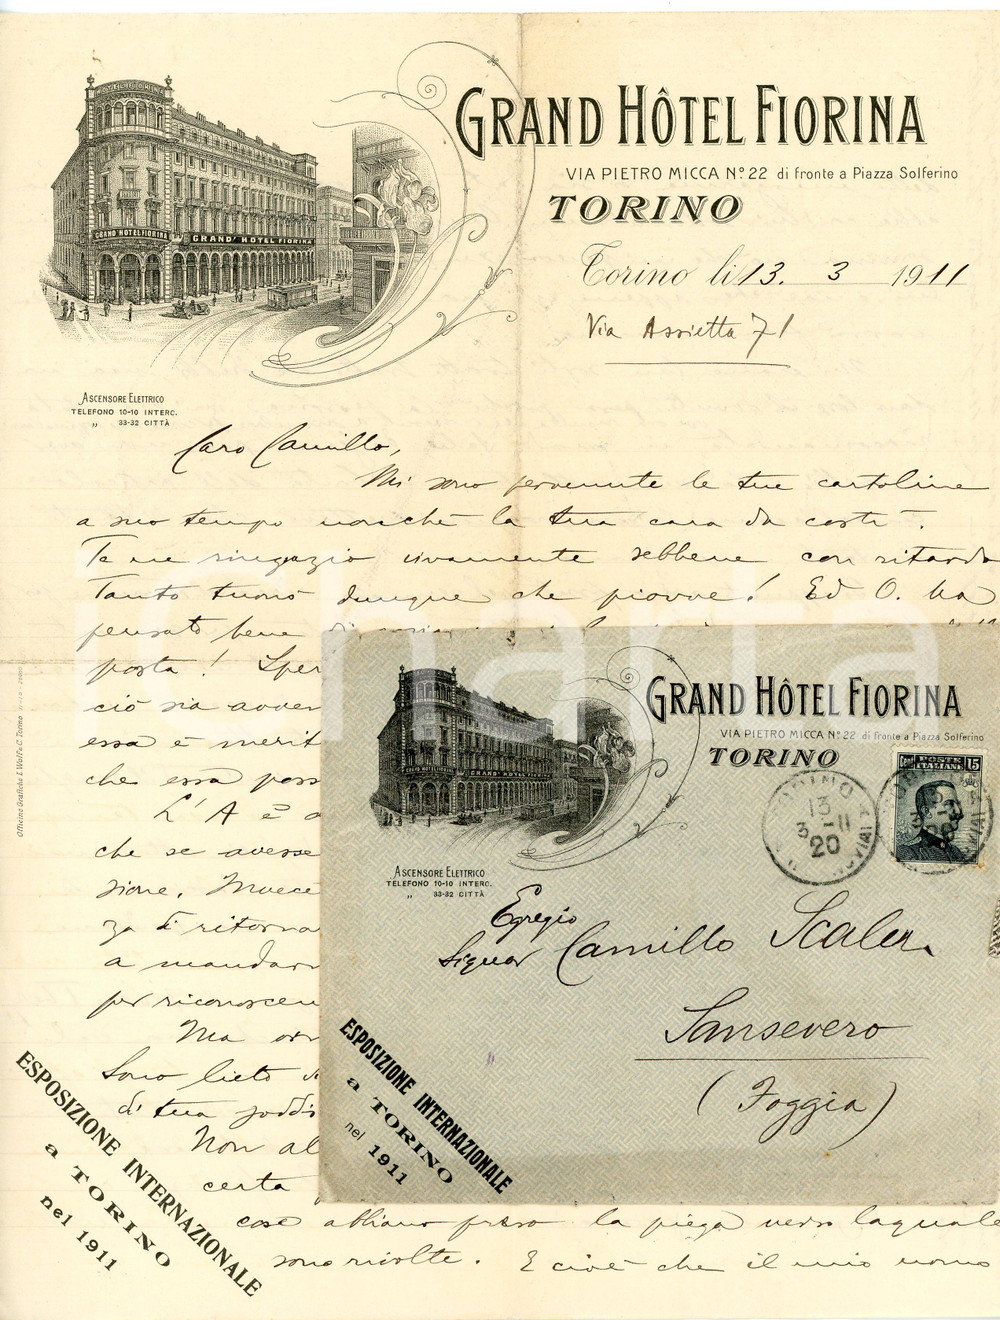 GRAND HÔTEL FIORINA
VIA PIETRO MICCA Nº 22 di fronte a Piazza Solferino
TORINO
Torino li 13. 3 1911
Via Assietta 71
HOTEL FIORINA
GRAND HOTEL FIORINA
GRAND' HOTEL FIORINA
ASCENSORE ELETTRICO
TELEFONO 10-10 INTERC.
„ 33-32 CITTÀ
Caro Camillo,
Mi sono pervenute le tue cartoline
a suo tempo nonchè la tua cara da costì.
Te ne ringrazio vivamente sebbene con ritardo
Tanto tuonò dunque che piovve! Ed O. ha
pensato bene di
posta! Sper
ciò sia avven
essa è merit
che essa poss
L'A è
che se avesse
sione.
za di ritorna
a mandar
per riconoscen
Ma
Sono lieto
di tua soddis
Non al
certa
cose abbiano preso la piega verso la quale
sono rivolte. E cioè che il mio nome
Officine Grafiche I. Wolf e C. Torino
ESPOSIZIONE INTERNAZIONALE
a TORINO
nel 1911
GRAND HÔTEL FIORINA
VIA PIETRO MICCA Nº 22 di fronte a Piazza Solferino
TORINO
GRAND HOTEL FIORINA
GRAND' HOTEL FIORINA
ASCENSORE ELETTRICO
TELEFONO 10-10 INTERC.
„ 33-32 CITTÀ
TORINO
13
3-11
20
POSTE ITALIANE
Cent. 15
Egregio
Signor Camillo Scalera
Sansevero
(Foggia)
ESPOSIZIONE INTERNAZIONALE
a TORINO
nel 1911
iCharta